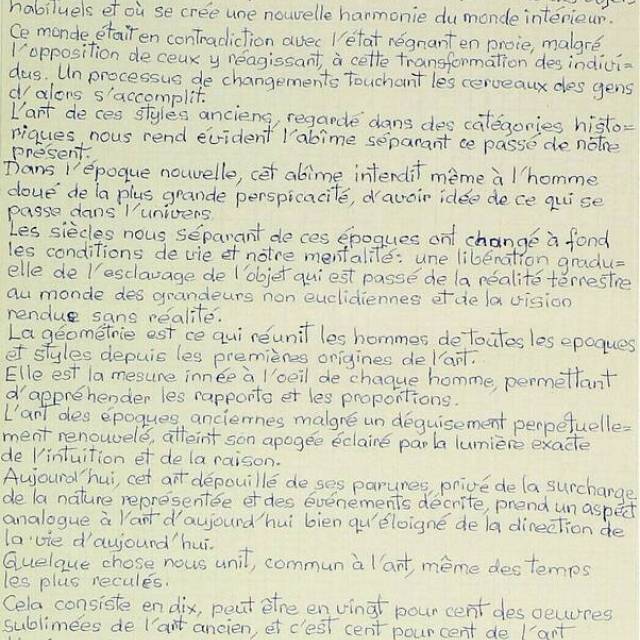 habituels et où se crée une nouvelle harmonie du monde intérieur.
Ce monde était en contradiction avec l'état régnant en proie, malgré
l'opposition de ceux y réagissant, à cette transformation des indivi=
dus. Un processus de changements touchant les cerveaux des gens
d'alors s'accomplit.
L'art de ces styles anciens, regardé dans des catégories histo=
riques nous rend évident l'abîme séparant ce passé de nôtre
présent.
Dans l'époque nouvelle, cet abîme interdit même à l'homme
doué de la plus grande perspicacité, d'avoir idée de ce qui se
passe dans l'univers.
Les siècles nous séparant de ces époques ont changé à fond
les conditions de vie et nôtre mentalité: une libération gradu=
elle de l'esclavage de l'objet qui est passé de la réalité terrestre
au monde des grandeurs non euclidiennes et de la vision
rendue sans réalité.
La géométrie est ce qui réunit les hommes de toutes les epoques
et styles depuis les premières origines de l'art.
Elle est la mesure innée à l'oeil de chaque homme, permettant
d'appréhender les rapports et les proportions.
L'art des époques anciennes malgré un déguisement perpétuelle=
ment renouvelé, atteint son apogée éclairé par la lumière exacte
de l'intuition et de la raison.
Aujourd'hui, cet art dépouillé de ses parures, privé de la surcharge
de la nature représentée et des événements décrite, prend un aspect
analogue à l'art d'aujourd'hui bien qu'éloigné de la direction de
la vie d'aujourd'hui.
Quelque chose nous unit, commun à l'art, même des temps
les plus reculés.
Cela consiste en dix, peut être en vingt pour cent des oeuvres
sublimées de l'art ancien, et c'est cent pour cent de l'art